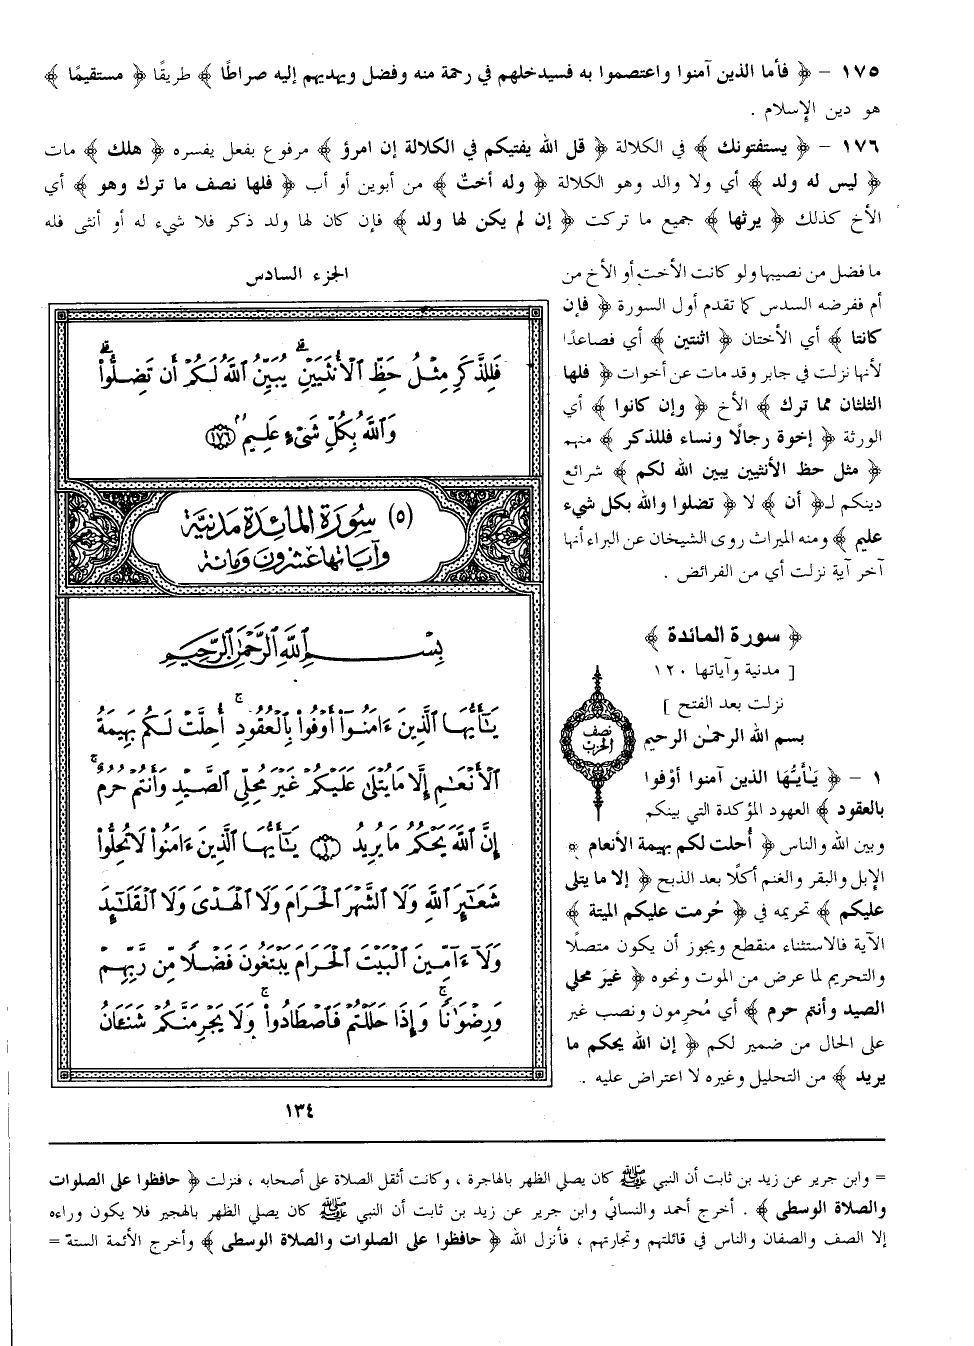 ١٧٥ – ﴿ فأما الذين آمنوا واعتصموا به فسيدخلهم في رحمة منه وفضل ويهديهم إليه صراطًا ﴾ طريقًا ﴿ مستقيمًا ﴾
هو دين الإسلام .
١٧٦ – ﴿ يستفتونك ﴾ في الكلالة ﴿ قل الله يفتيكم في الكلالة إن امرؤ ﴾ مرفوع بفعل يفسره ﴿ هلك ﴾ مات
﴿ ليس له ولد ﴾ أي ولا والد وهو الكلالة ﴿ وله أختٌ ﴾ من أبوين أو أب ﴿ فلها نصف ما ترك وهو ﴾ أي
الأخ كذلك ﴿ يرثها ﴾ جميع ما تركت ﴿ إن لم يكن لها ولد ﴾ فإن كان لها ولد ذكر فلا شيء له أو أنثى فله
ما فضل من نصيبها ولو كانت الأخت أو الأخ من
أم ففرضه السدس كما تقدم أول السورة ﴿ فإن
كانتا ﴾ أي الأختان ﴿ اثنتين ﴾ أي فصاعدًا
لأنها نزلت في جابر وقد مات عن أخوات ﴿ فلها
الثلثان مما ترك ﴾ الأخ ﴿ وإن كانوا ﴾ أي
الورثة ﴿ إخوة رجالًا ونساء فللذكر ﴾ منهم
﴿ مثل حظ الأنثيين يبين الله لكم ﴾ شرائع
دينكم لـ﴿ أن ﴾ لا ﴿ تضلوا والله بكل شيء
عليم ﴾ ومنه الميراث روى الشيخان عن البراء أنها
آخر آية نزلت أي من الفرائض .
﴿ سورة المائدة ﴾
[ مدنية وآياتها ١٢٠
نزلت بعد الفتح ]
بسم الله الرحمٰن الرحيم
١ – ﴿ يَـٰأيـُّهَا الذين آمنوا أوْفوا
بالعقود ﴾ العهود المؤكدة التي بينكم
وبين الله والناس ﴿ أُحلت لكم بهيمة الأنعام ﴾
الإبل والبقر والغنم أكلًا بعد الذبح ﴿ إلا ما يتلى
عليكم ﴾ تحريمه في ﴿ حُرمت عليكم الميتة ﴾
الآية فالاستثناء منقطع ويجوز أن يكون متصلًا
والتحريم لما عرض من الموت ونحوه ﴿ غيرَ محلي
الصيد وأنتم حرم ﴾ أي مُحرمون ونصب غير
على الحال من ضمير لكم ﴿ إن الله يحكم ما
يريد ﴾ من التحليل وغيره لا اعتراض عليه .
نصف
الحزب
الجزء السادس
فَلِلذَّكَرِ مِثْلُ حَظِّ ٱلْأُنثَيَيْنِ ۗ يُبَيِّنُ ٱللَّهُ لَكُمْ أَن تَضِلُّوا۟ ۗ
وَٱللَّهُ بِكُلِّ شَىْءٍ عَلِيمٌۢ ١٧٦
(٥) سورة المائدة مدنية
وآياتها عشرون ومائة
بِسْمِ ٱللَّهِ ٱلرَّحْمَـٰنِ ٱلرَّحِيمِ
يَـٰٓأَيُّهَا ٱلَّذِينَ ءَامَنُوٓا۟ أَوْفُوا۟ بِٱلْعُقُودِ ۚ أُحِلَّتْ لَكُم بَهِيمَةُ
ٱلْأَنْعَـٰمِ إِلَّا مَا يُتْلَىٰ عَلَيْكُمْ غَيْرَ مُحِلِّى ٱلصَّيْدِ وَأَنتُمْ حُرُمٌ ۗ
إِنَّ ٱللَّهَ يَحْكُمُ مَا يُرِيدُ ١ يَـٰٓأَيُّهَا ٱلَّذِينَ ءَامَنُوا۟ لَا تُحِلُّوا۟
شَعَـٰٓئِرَ ٱللَّهِ وَلَا ٱلشَّهْرَ ٱلْحَرَامَ وَلَا ٱلْهَدْىَ وَلَا ٱلْقَلَـٰٓئِدَ
وَلَآ ءَآمِّينَ ٱلْبَيْتَ ٱلْحَرَامَ يَبْتَغُونَ فَضْلًا مِّن رَّبِّهِمْ
وَرِضْوَٰنًا ۚ وَإِذَا حَلَلْتُمْ فَٱصْطَادُوا۟ ۚ وَلَا يَجْرِمَنَّكُمْ شَنَـَٔانُ
١٣٤
= وابن جرير عن زيد بن ثابت أن النبي ﷺ كان يصلي الظهر بالهاجرة ، وكانت أثقل الصلاة على أصحابه ، فنزلت ﴿ حافظوا على الصلوات
والصلاة الوسطى ﴾ . أخرج أحمد والنسائي وابن جرير عن زيد بن ثابت أن النبي ﷺ كان يصلي الظهر بالهجير فلا يكون وراءه
إلا الصف والصفان والناس في قائلتهم وتجارتهم ، فأنزل الله ﴿ حافظوا على الصلوات والصلاة الوسطى ﴾ وأخرج الأئمة الستة =